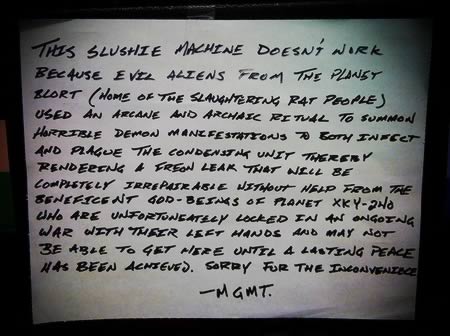 THIS SLUSHIE MACHINE DOESN'T WORK
BECAUSE EVIL ALIENS FROM THE PLANET
BLORT (HOME OF THE SLAUGHTERING RAT PEOPLE)
USED AN ARCANE AND ARCHAIC RITUAL TO SUMMON
HORRIBLE DEMON MANIFESTATIONS TO BOTH INFECT
AND PLAGUE THE CONDENSING UNIT THEREBY
RENDERING A FREON LEAK THAT WILL BE
COMPLETELY IRREPAIRABLE WITHOUT HELP FROM THE
BENEFICENT GOD-BEINGS OF PLANET XKY-2NO
WHO ARE UNFORTUNEATELY LOCKED IN AN ONGOING
WAR WITH THEIR LEFT HANDS AND MAY NOT
BE ABLE TO GET HERE UNTIL A LASTING PEACE
HAS BEEN ACHIEVED. SORRY FOR THE INCONVENIENCE
—MGMT.